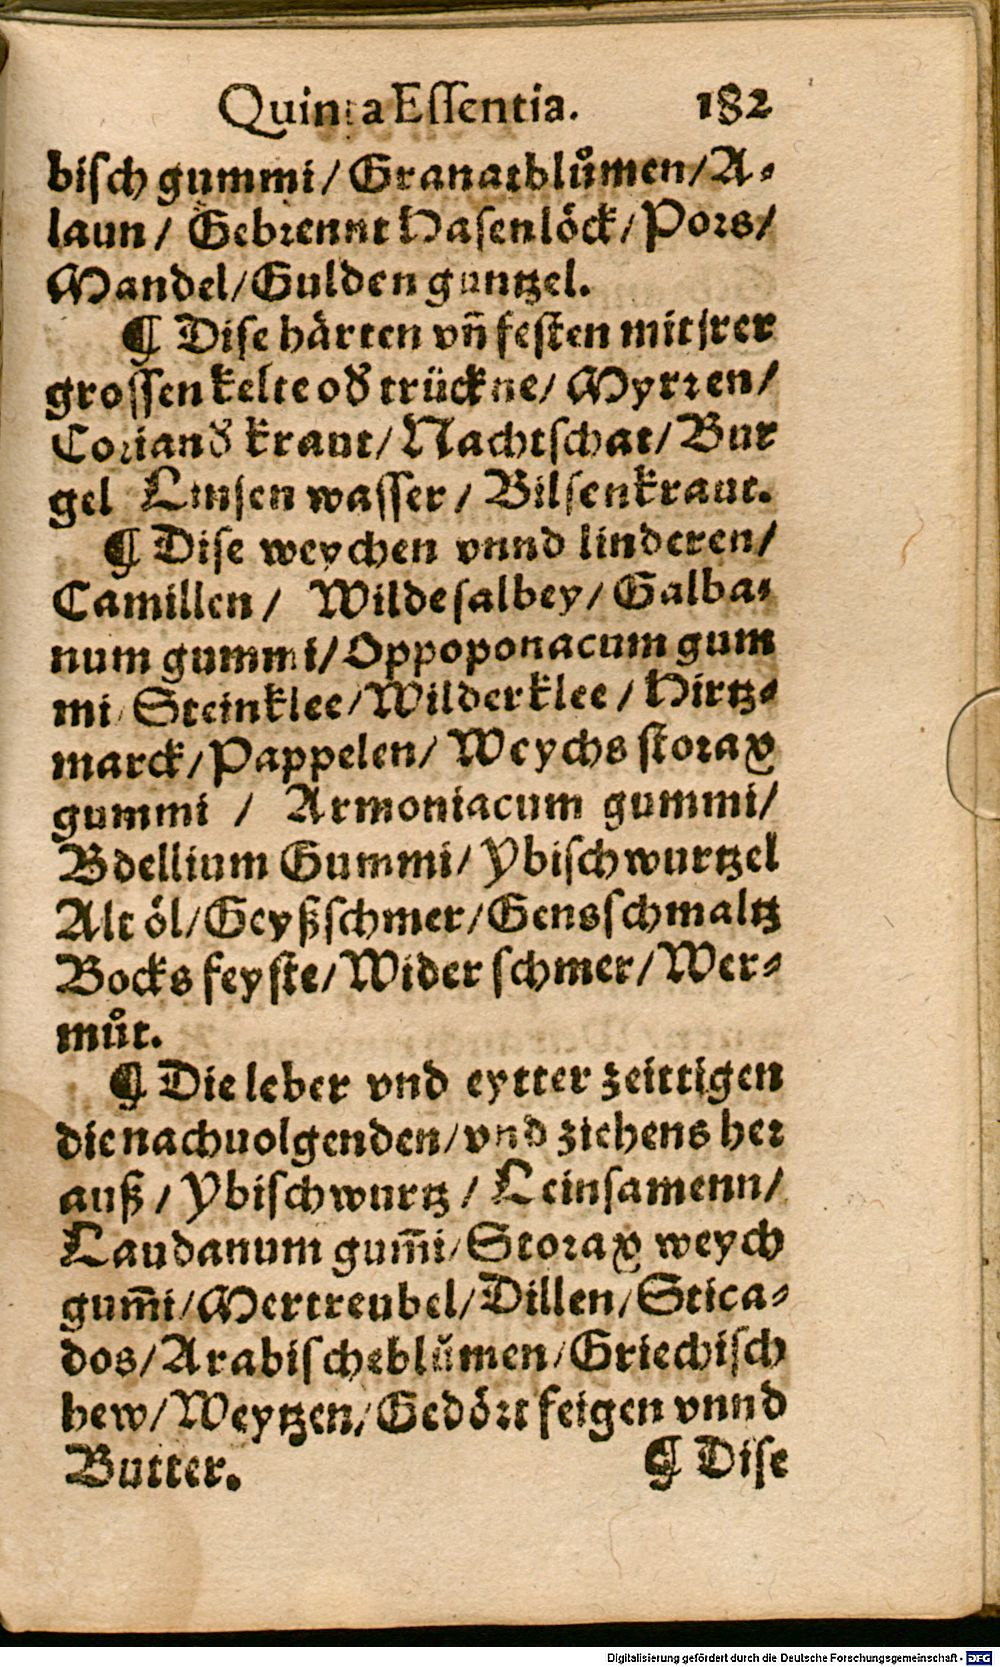 Quinta Eſſentia. 182
biſch gummi / Granatblůmen / A⸗
laun / Gebrennt Haſenlöck / Pors /
Mandel / Gulden guntzel.
¶ Diſe härten vñ feſten mit jrer
groſſen kelte oď trückne / Myrren /
Corianď kraut / Nachtſchat / Bur
gel Linſen waſſer / Bilſenkraut.
¶ Diſe weychen vnnd linderen /
Camillen / Wilde ſalbey / Galba⸗
num gummi / Oppoponacum gum
mi / Steinklee / Wilderklee / Hirtz⸗
marck / Pappelen / Weychs ſtorax
gummi / Armoniacum gummi /
Bdellium Gummi / Ybiſchwurtzel
Alt öl / Geyßſchmer / Gensſchmaltz
Bocks feyſte / Wider ſchmer / Wer⸗
můt.
¶ Die leber vnd eytter zeittigen
die nachuolgenden / vnd ziehens her
auß / Ybiſchwurtz / Leinſamenn /
Laudanum gum̃i / Storax weych
gum̃i / Mertreubel / Dillen / Stica⸗
dos / Arabiſcheblůmen / Griechiſch
hew / Weytzen / Gedört feigen vnnd
Butter. ¶ Diſe
Digitalisierung gefördert durch die Deutsche Forschungsgemeinschaft - DFG